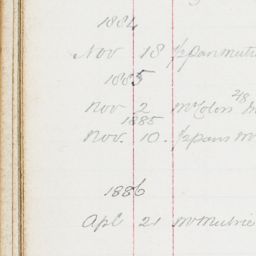 1884
Nov 18 ½ pan Mutri
1885
Nov 2 McColm 2/8
1885
Nov. 10. ½ pans M
1886
Apl 21 McMutrie